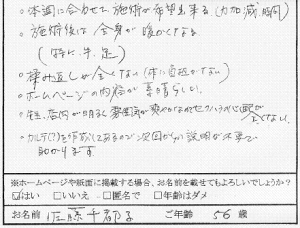 ○ 体調に合わせて施術が希望出来る。(力加減、時間)
○ 施術後は全身が暖かくなる
(特に手足)
○ 揉み返しが全くない(体に負担がない)
○ ホームページの内容が素晴らしい
○ 店内が明るく雰囲気が爽やかなので
全くない。
○ カルテ(?)を作成してあるので次回からの説明が不要で
助かります
※ホームページや紙面に掲載する場合、お名前を載せてもよろしいでしょうか?
☑はい □いいえ □匿名で □年齢はダメ
お名前 佐藤千都子 ご年齢 56 歳